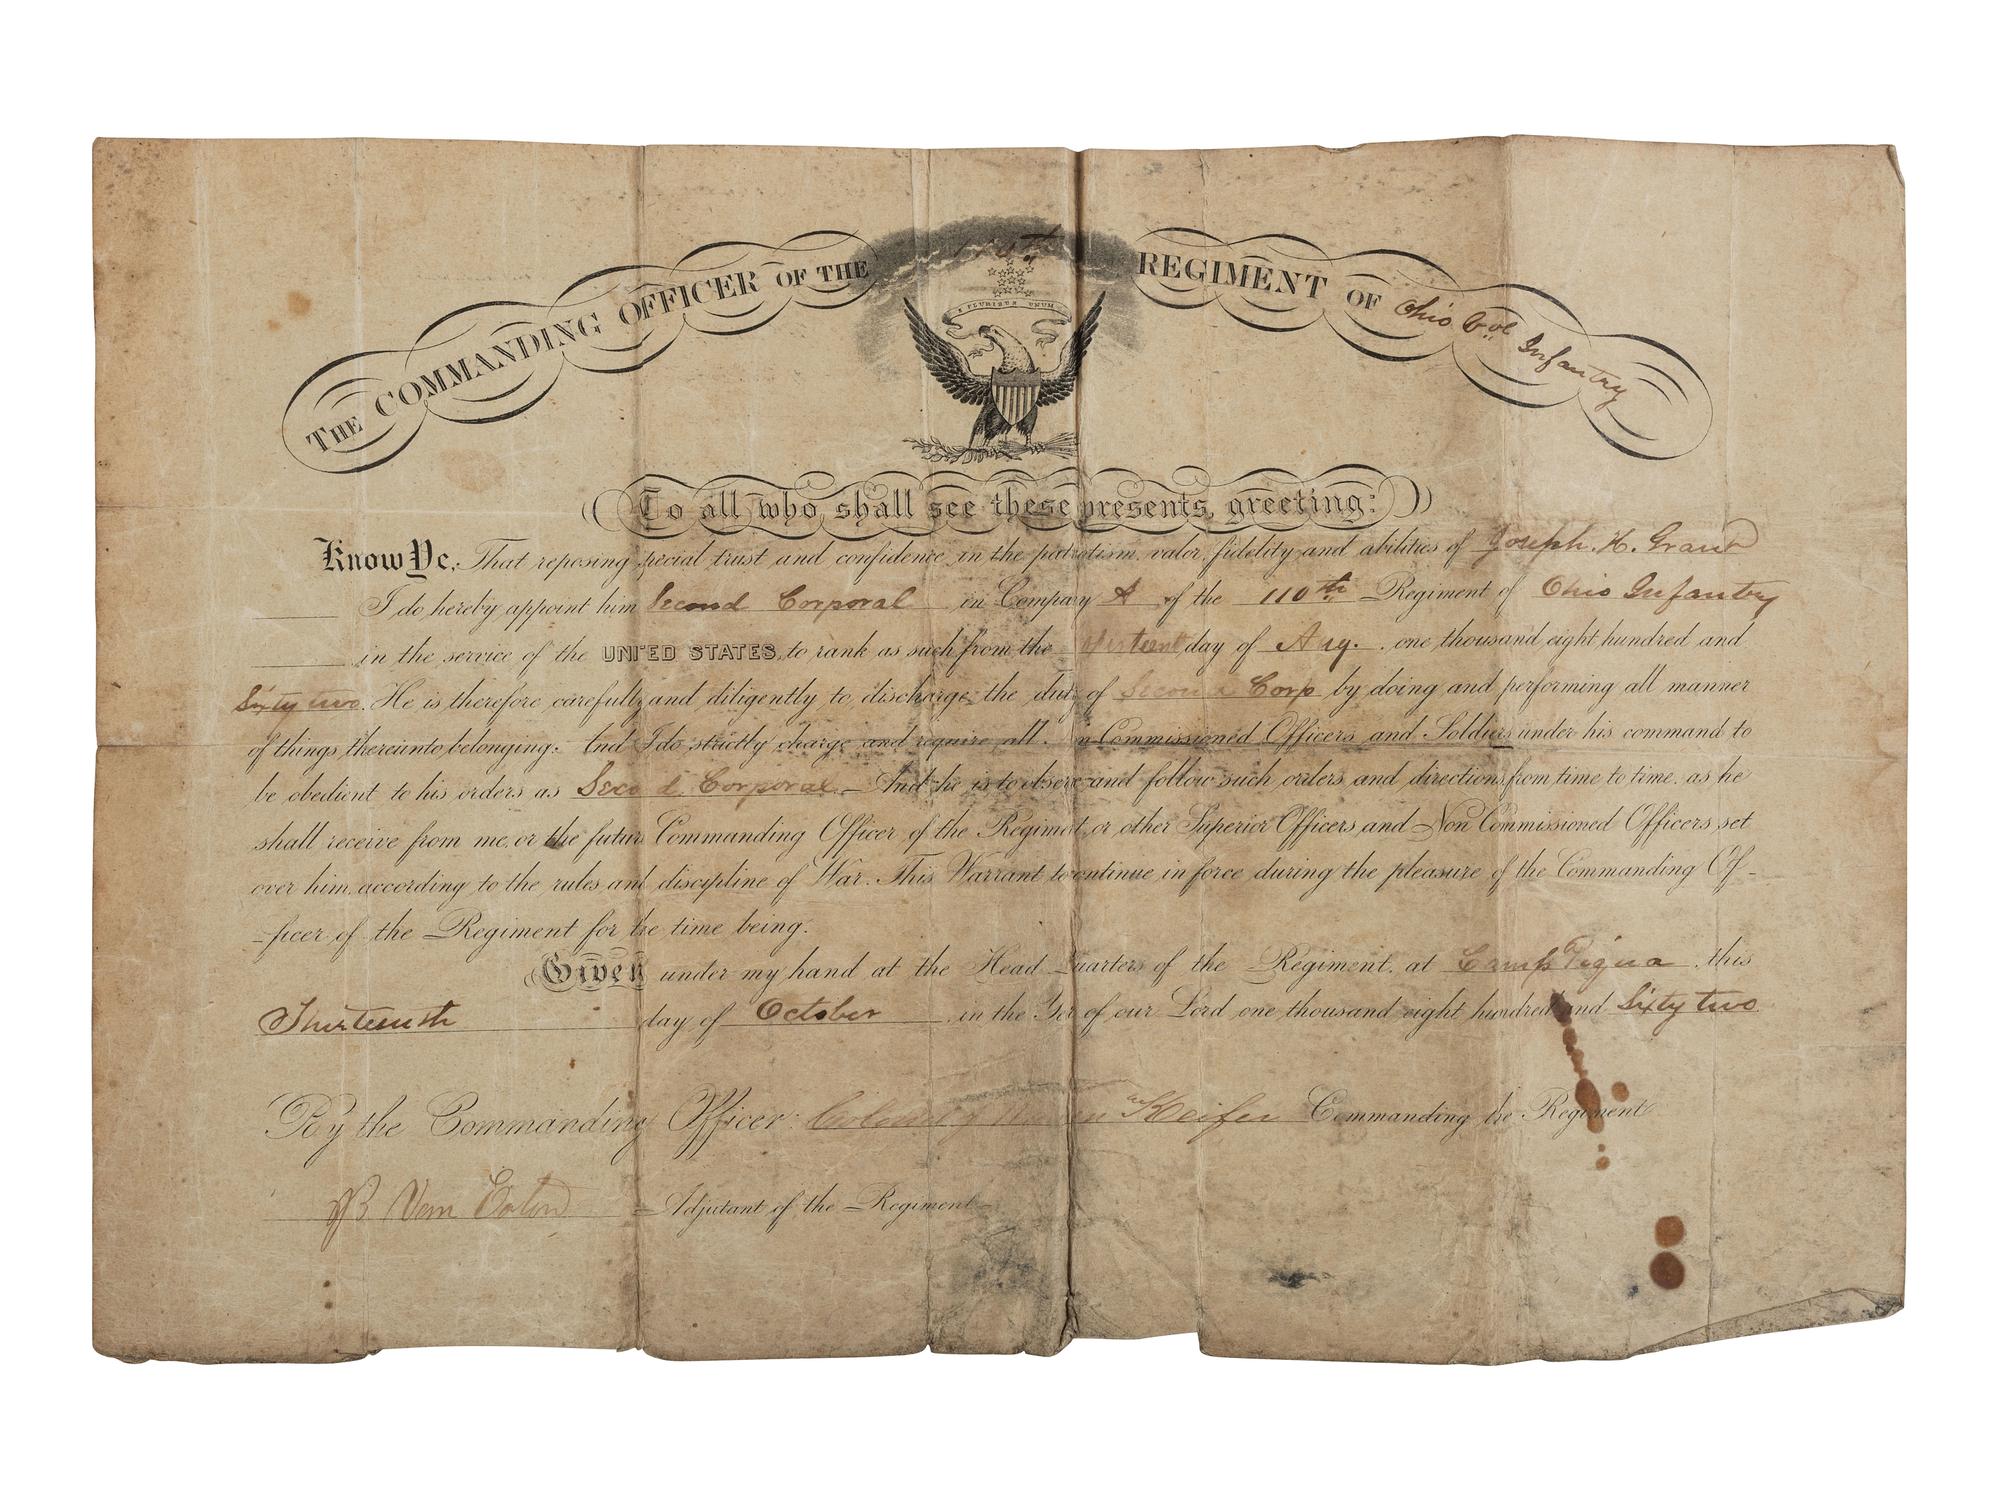 THE COMMANDING OFFICER OF THE 110th REGIMENT OF Ohio Vol Infantry
E PLURIBUS UNUM
To all who shall see these presents, greeting:
Know Ye, That reposing special trust and confidence in the patriotism, valor, fidelity and abilities of Joseph. H. Grant
I do hereby appoint him Second Corporal in Company A of the 110th Regiment of Ohio Infantry
in the service of the UNITED STATES, to rank as such from the thirteenth day of Aug. one thousand eight hundred and
Sixty two. He is therefore carefully and diligently to discharge the duty of Second Corp by doing and performing all manner
of things thereunto belonging. And I do strictly charge and require all Non Commissioned Officers and Soldiers under his command to
be obedient to his orders as Second Corporal And he is to observe and follow such orders and directions from time to time, as he
shall receive from me, or the future Commanding Officer of the Regiment, or other Superior Officers and Non Commissioned Officers set
over him, according to the rules and discipline of War. This Warrant to continue in force during the pleasure of the Commanding Of-
-ficer of the Regiment for the time being.
Given under my hand at the Head Quarters of the Regiment, at Camp Piqua this
Thirteenth day of October in the Year of our Lord one thousand eight hundred and Sixty two.
By the Commanding Officer: Colonel J Warren Keifer Commanding the Regiment
Adjutant of the Regiment